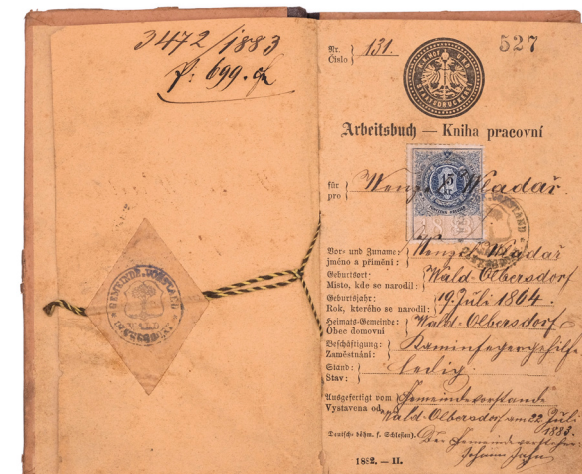 3472/1883
f: 699.
Nr.
Číslo } 131.
527
K.K. HOF UND STAATSDRUCKEREI
Arbeitsbuch — Kniha pracovní
15
KR
für
pro } Wenzel Wladař
Vor- und Zuname:
jméno a příméní: } Wenzel Wladař
Geburtsort:
Místo, kde se narodil: } Wald-Olbersdorf
Geburtsjahr:
Rok, kterého se narodil: } 19. Juli 1864.
Heimats-Gemeinde:
Obec domovní } Wald-Olbersdorf
Beschäftigung:
Zaměstnání: } Kaminfegergehilfe
Stand:
Stav: } ledig.
Ausgefertigt vom
Vystavena od } Gemeindevorstande
Wald-Olbersdorf am 22 Juli
1883.
Deutsch-böhm. f. Schlesien). Der Gemeindevorsteher
Johann Jahn
1882. — II.
GEMEINDE-VORSTAND